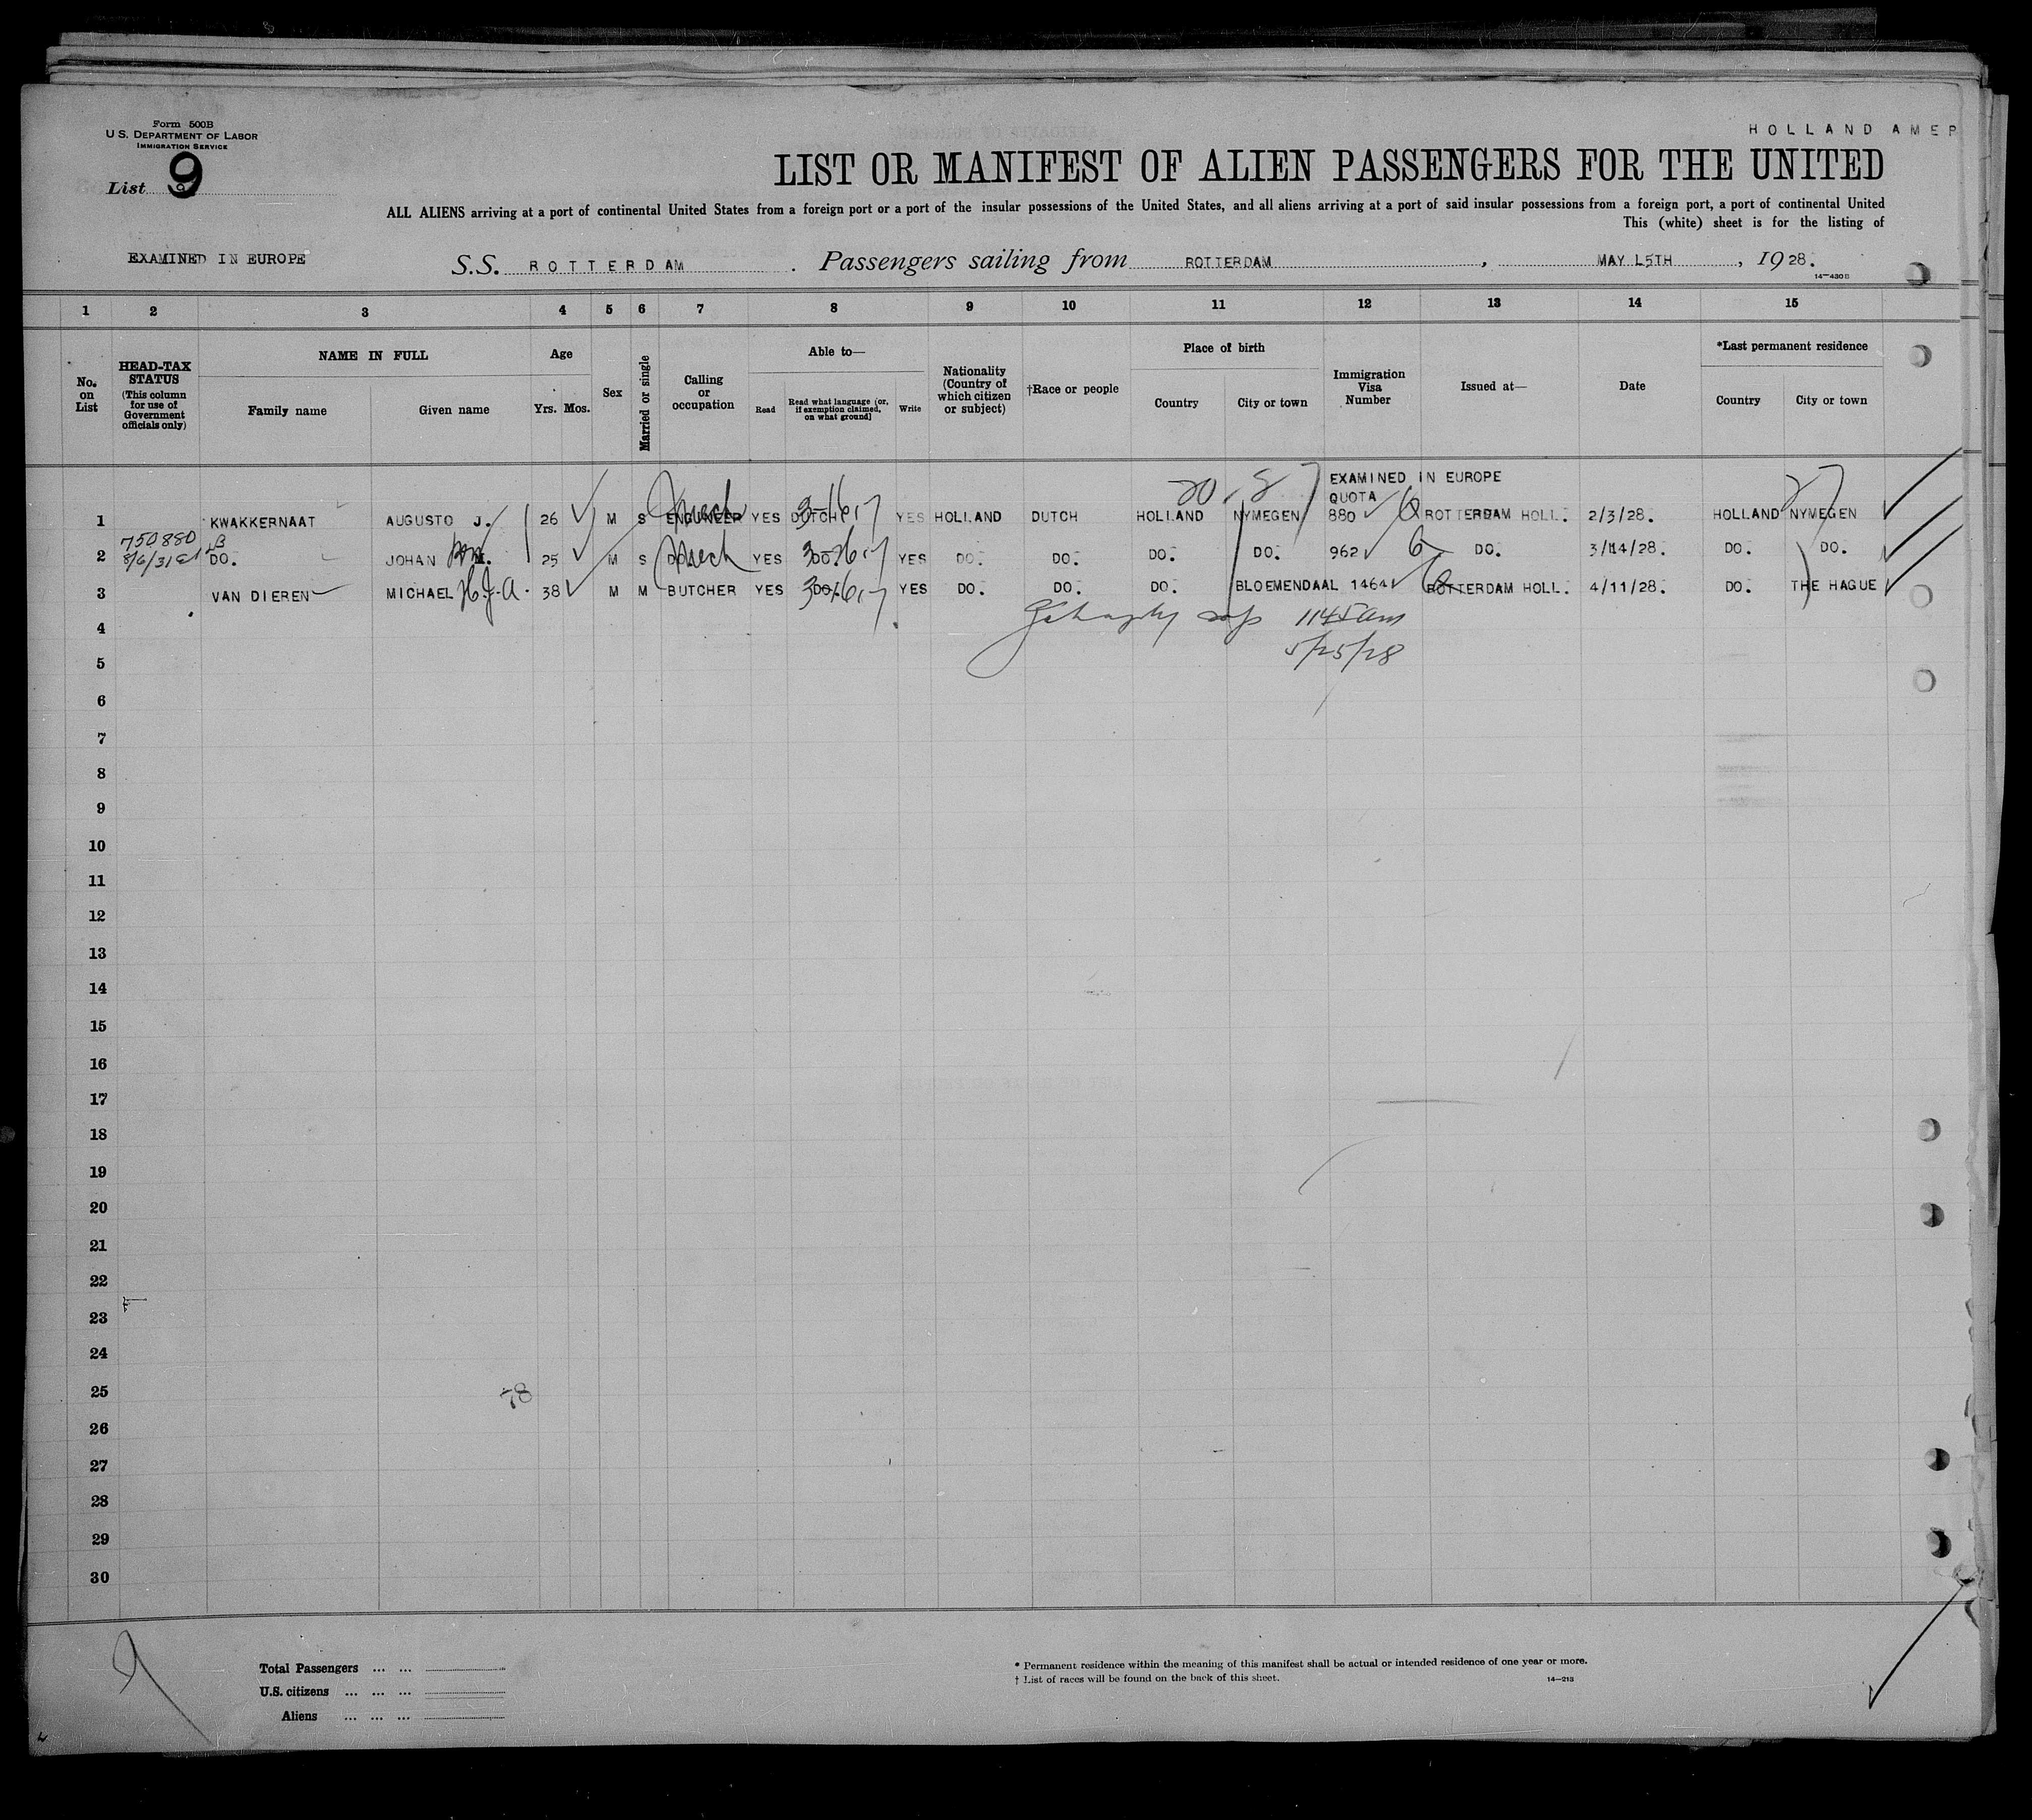 HOLLAND AMER
Form 500B
U.S. DEPARTMENT OF LABOR
IMMIGRATION SERVICE
List 9
LIST OR MANIFEST OF ALIEN PASSENGERS FOR THE UNITED
ALL ALIENS arriving at a port of continental United States from a foreign port or a port of the insular possessions of the United States, and all aliens arriving at a port of said insular possessions from a foreign port, a port of continental United
This (white) sheet is for the listing of
EXAMINED IN EUROPE S.S. ROTTERDAM. Passengers sailing from ROTTERDAM, MAY L5TH, 1928.
14—430B
1 2 3 4 5 6 7 8 9 10 11 12 13 14 15
No. on List
HEAD-TAX STATUS (This column for use of Government officials only)
NAME IN FULL
Family name Given name
Age
Yrs. Mos.
Sex
Married or single
Calling or occupation
Able to—
Read
Read what language [or, if exemption claimed, on what ground]
Write
Nationality (Country of which citizen or subject)
†Race or people
Place of birth
Country City or town
Immigration Visa Number
Issued at—
Date
*Last permanent residence
Country City or town
EXAMINED IN EUROPE
QUOTA
1 KWAKKERNAAT AUGUSTO J. 26 M S ENGINEER Mech YES DUTCH YES HOLLAND DUTCH HOLLAND NYMEGEN 880 ROTTERDAM HOLL. 2/3/28. HOLLAND NYMEGEN
750880
8/6/31
2 DO. JOHAN M. 25 M S DO. Mech YES DO. YES DO. DO. DO. DO. 962 DO. 3/14/28. DO. DO.
3 VAN DIEREN MICHAEL H.J.A. 38 M M BUTCHER YES DO. YES DO. DO. DO. BLOEMENDAAL 1464 ROTTERDAM HOLL. 4/11/28. DO. THE HAGUE
1145am
5/25/28
4
5
6
7
8
9
10
11
12
13
14
15
16
17
18
19
20
21
22
23
24
25
78
26
27
28
29
30
9
Total Passengers ... ...
U.S. citizens ... ... ...
Aliens ... ... ...
* Permanent residence within the meaning of this manifest shall be actual or intended residence of one year or more.
† List of races will be found on the back of this sheet.
14—213